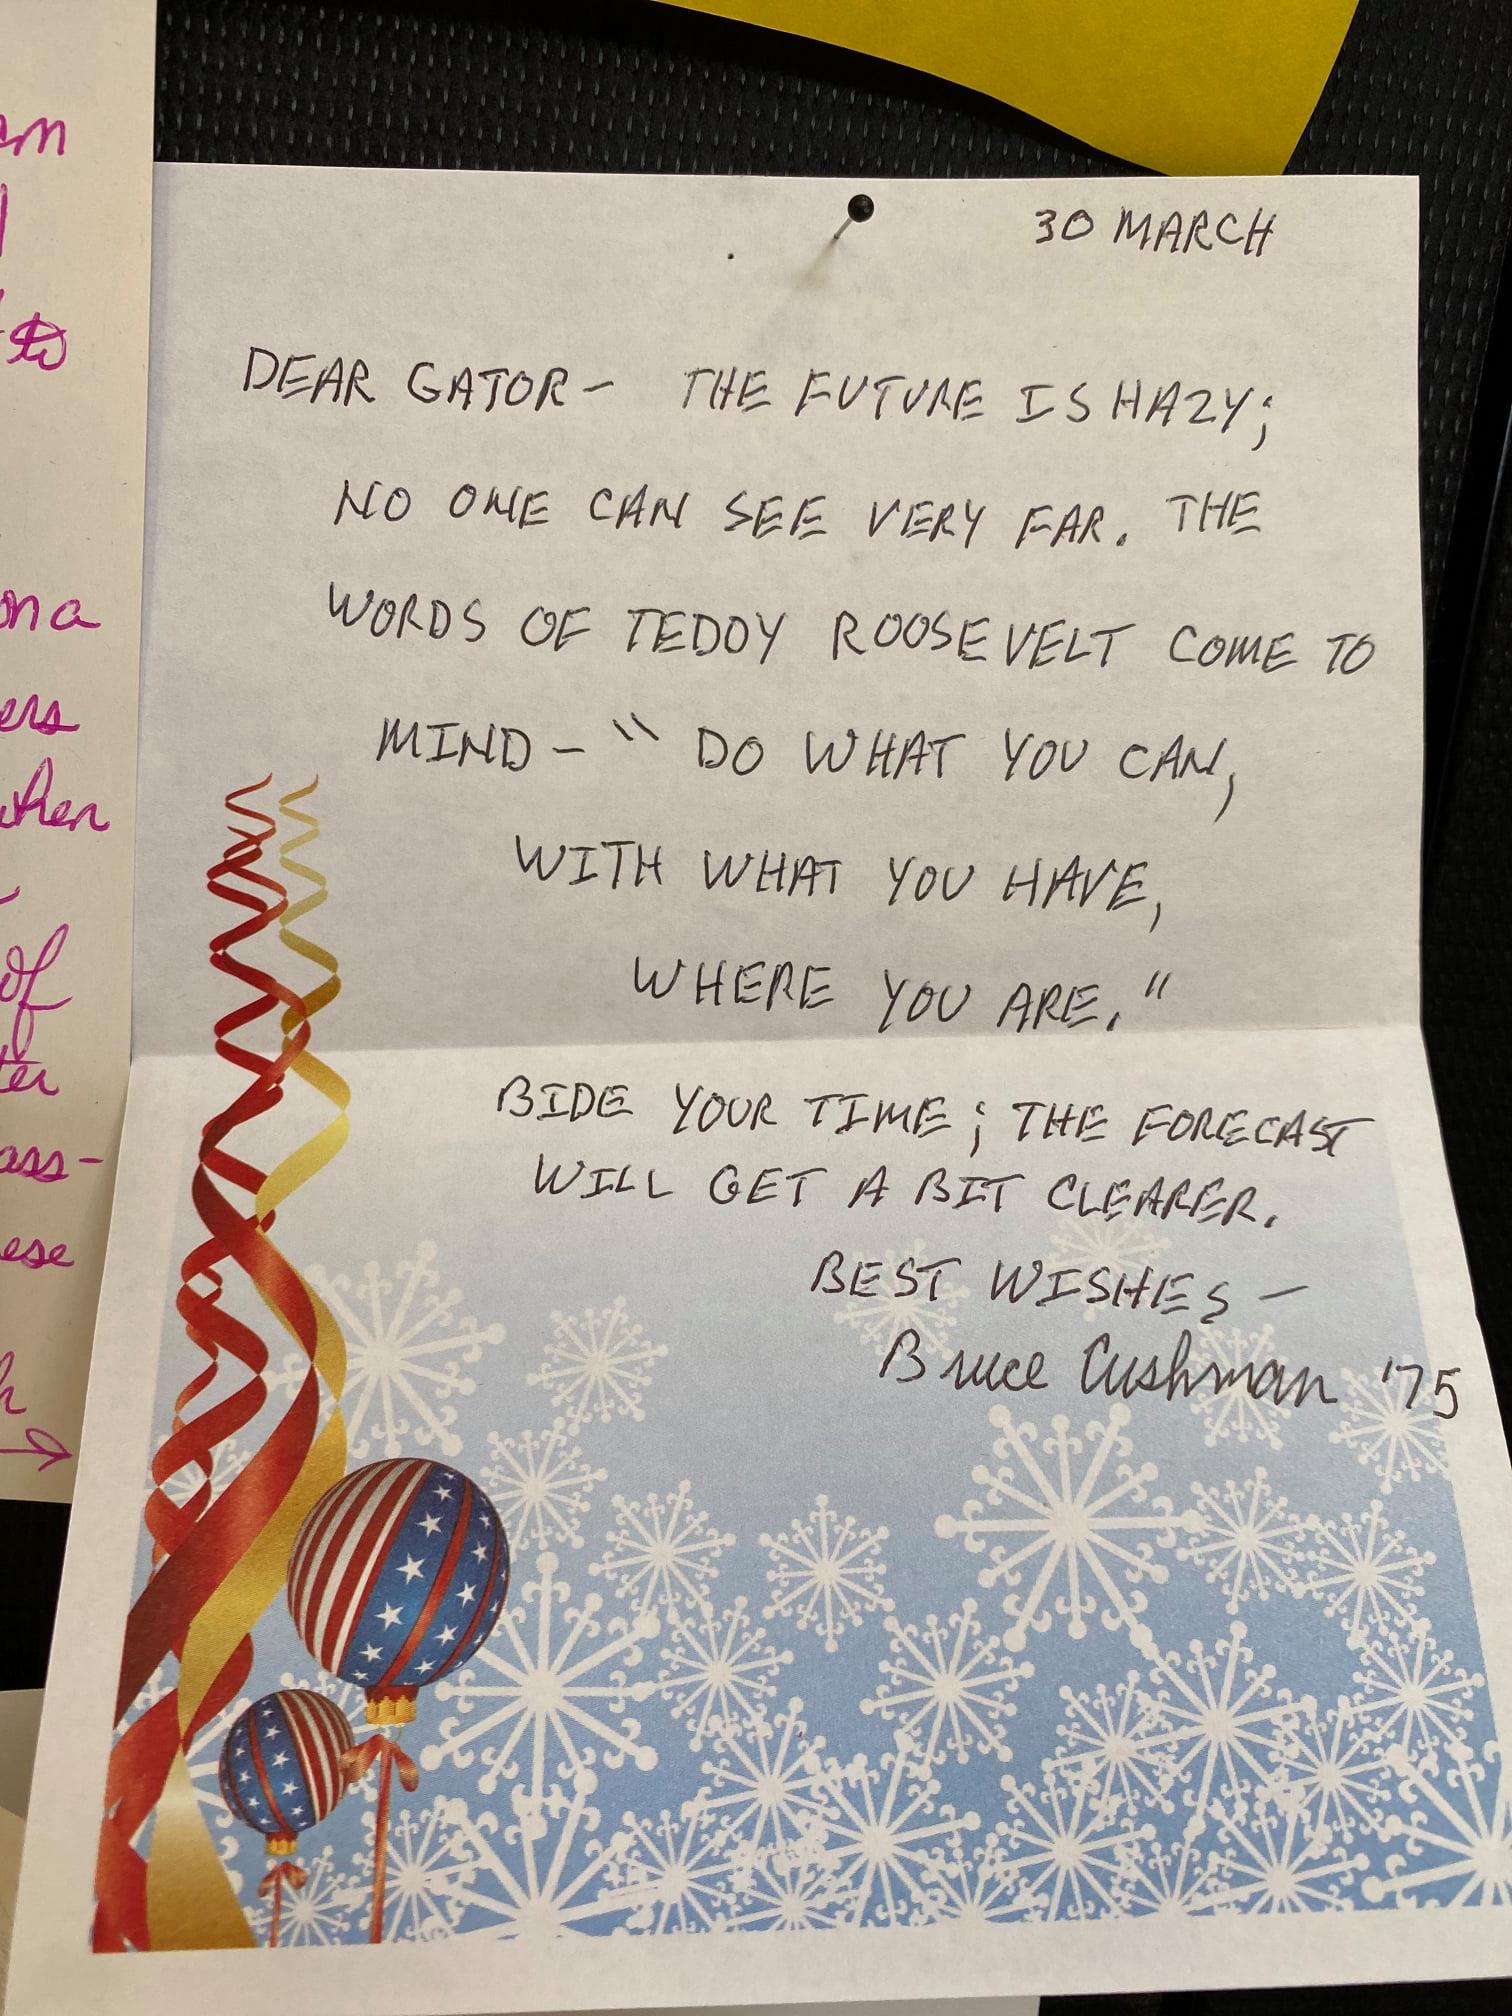 30 MARCH
DEAR GATOR- THE FUTURE IS HAZY;
NO ONE CAN SEE VERY FAR. THE
WORDS OF TEDDY ROOSEVELT COME TO
MIND- "DO WHAT YOU CAN,
WITH WHAT YOU HAVE,
WHERE YOU ARE."
BIDE YOUR TIME; THE FORECAST
WILL GET A BIT CLEARER.
BEST WISHES-
Bruce Cushman '75
to
ona
ers
when
of
ter
ass-
ese